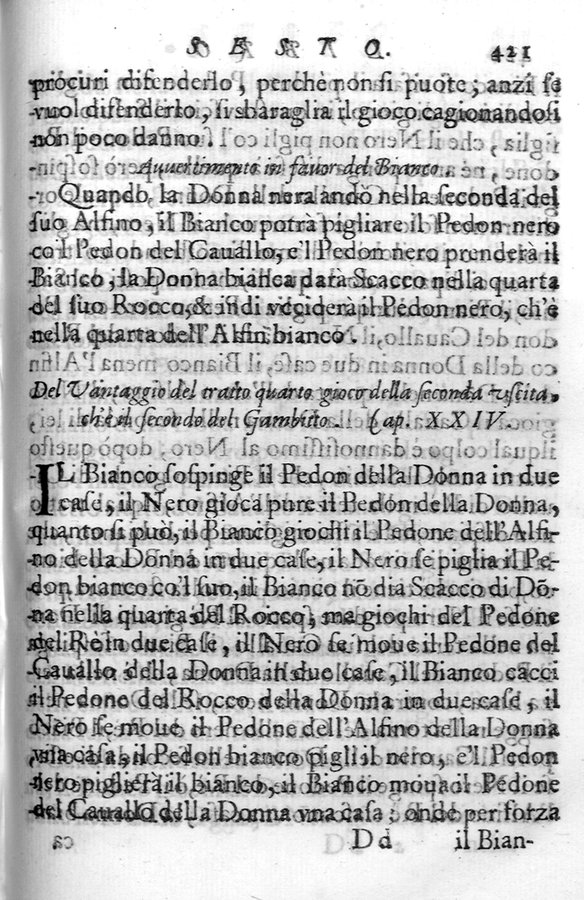 SESTO. 421
procuri difenderlo, perchè non si puote; anzi se
vuol difenderlo, si sbaraglia il gioco cagionandosi
non poco danno.
Auuertimento in fauor del Bianco.
Quando la Donna nera andò nella seconda del
suo Alfino, il Bianco potrà pigliare il Pedon nero
co'l Pedon del Cauallo, e'l Pedon nero prenderà il
Bianco, la Donna bianca darà Scacco nella quarta
del suo Rocco, & indi vcciderà il Pedon nero, ch'è
nella quarta dell'Alfin bianco.
Del Vantaggio del tratto quarto gioco della seconda vscita,
ch'è il secondo del Gambitto. Cap. XXIV.
IL Bianco sospinge il Pedon della Donna in due
case, il Nero gioca pure il Pedon della Donna,
quanto si può, il Bianco giochi il Pedone dell'Alfi-
no della Donna in due case, il Nero se piglia il Pe-
don bianco co'l suo, il Bianco nō dia Scacco di Dō-
na nella quarta del Rocco, ma giochi del Pedone
del Rè in due case, il Nero se moue il Pedone del
Cauallo della Donna in due case, il Bianco cacci
il Pedone del Rocco della Donna in due case, il
Nero se moue il Pedone dell'Alfino della Donna
vna casa, il Pedon bianco pigli il nero, e'l Pedon
nero piglierà il bianco, il Bianco moua il Pedone
del Cauallo della Donna vna casa; onde per forza
Dd il Bian-